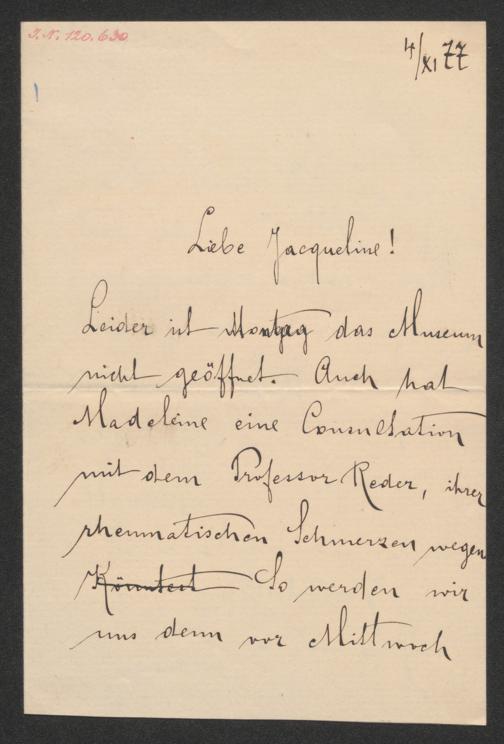 I.N. 120.630
4/XI 77
Liebe Jacqueline!
Leider ist Montag das Museum
nicht geöffnet. Auch hat
Madeleine eine Consultation
mit dem Professor Reder, ihrer
rheumatischen Schmerzen wegen
Könntest So werden wir
uns denn vor Mittwoch